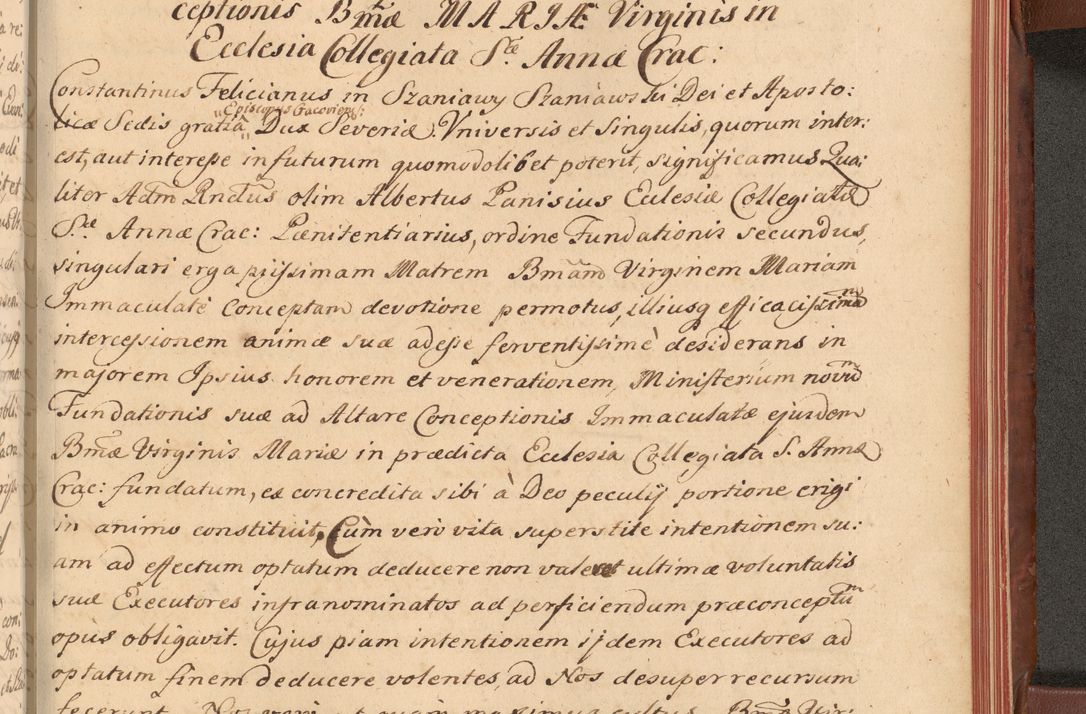 ceptionis Bmæ MARIÆ Virginis in
Ecclesia Collegiata Stæ Annæ Crac:
Constantinus Felicianus in Szaniawy Szaniawski Dei et Aposto:
Episcopus Cracovien:
licæ Sedis gratiâ Dux Severiæ. Vniversis et Singulis, quorum inter:
est, aut interesse in futurum quomodolibet poterit, significamus Qua:
liter Adm Rndus olim Albertus Panisius Ecclesiæ Collegiatæ
Stæ Annæ Crac: Pœnitentiarius, ordine Fundationis secundus,
singulari erga piissimam Matrem Bmam Virginem Mariam
Immaculatè Conceptam devotione permotus, illiusq efficacissimam
intercessionem animæ suæ adesse ferventissimè desiderans in
majorem Ipsius honorem et venerationem, Ministerium novum
Fundationis suæ ad Altare Conceptionis Immaculatæ ejusdem
Bmæ Virginis Mariæ in prædicta Ecclesia Collegiata S. Annæ
Crac: fundatum, ex concredita sibi à Deo peculij portione erigi
in animo constituit, Cùm verò vita superstite intentionem su:
am ad effectum optatum deducere non valeret ultimæ voluntatis
suæ Executores infranominatos ad perficiendum præconceptum
opus obligavit. Cujus piam intentionem ijdem Executores ad
optatum finem deducere volentes, ad Nos desuper recursum
fecerunt. Nos